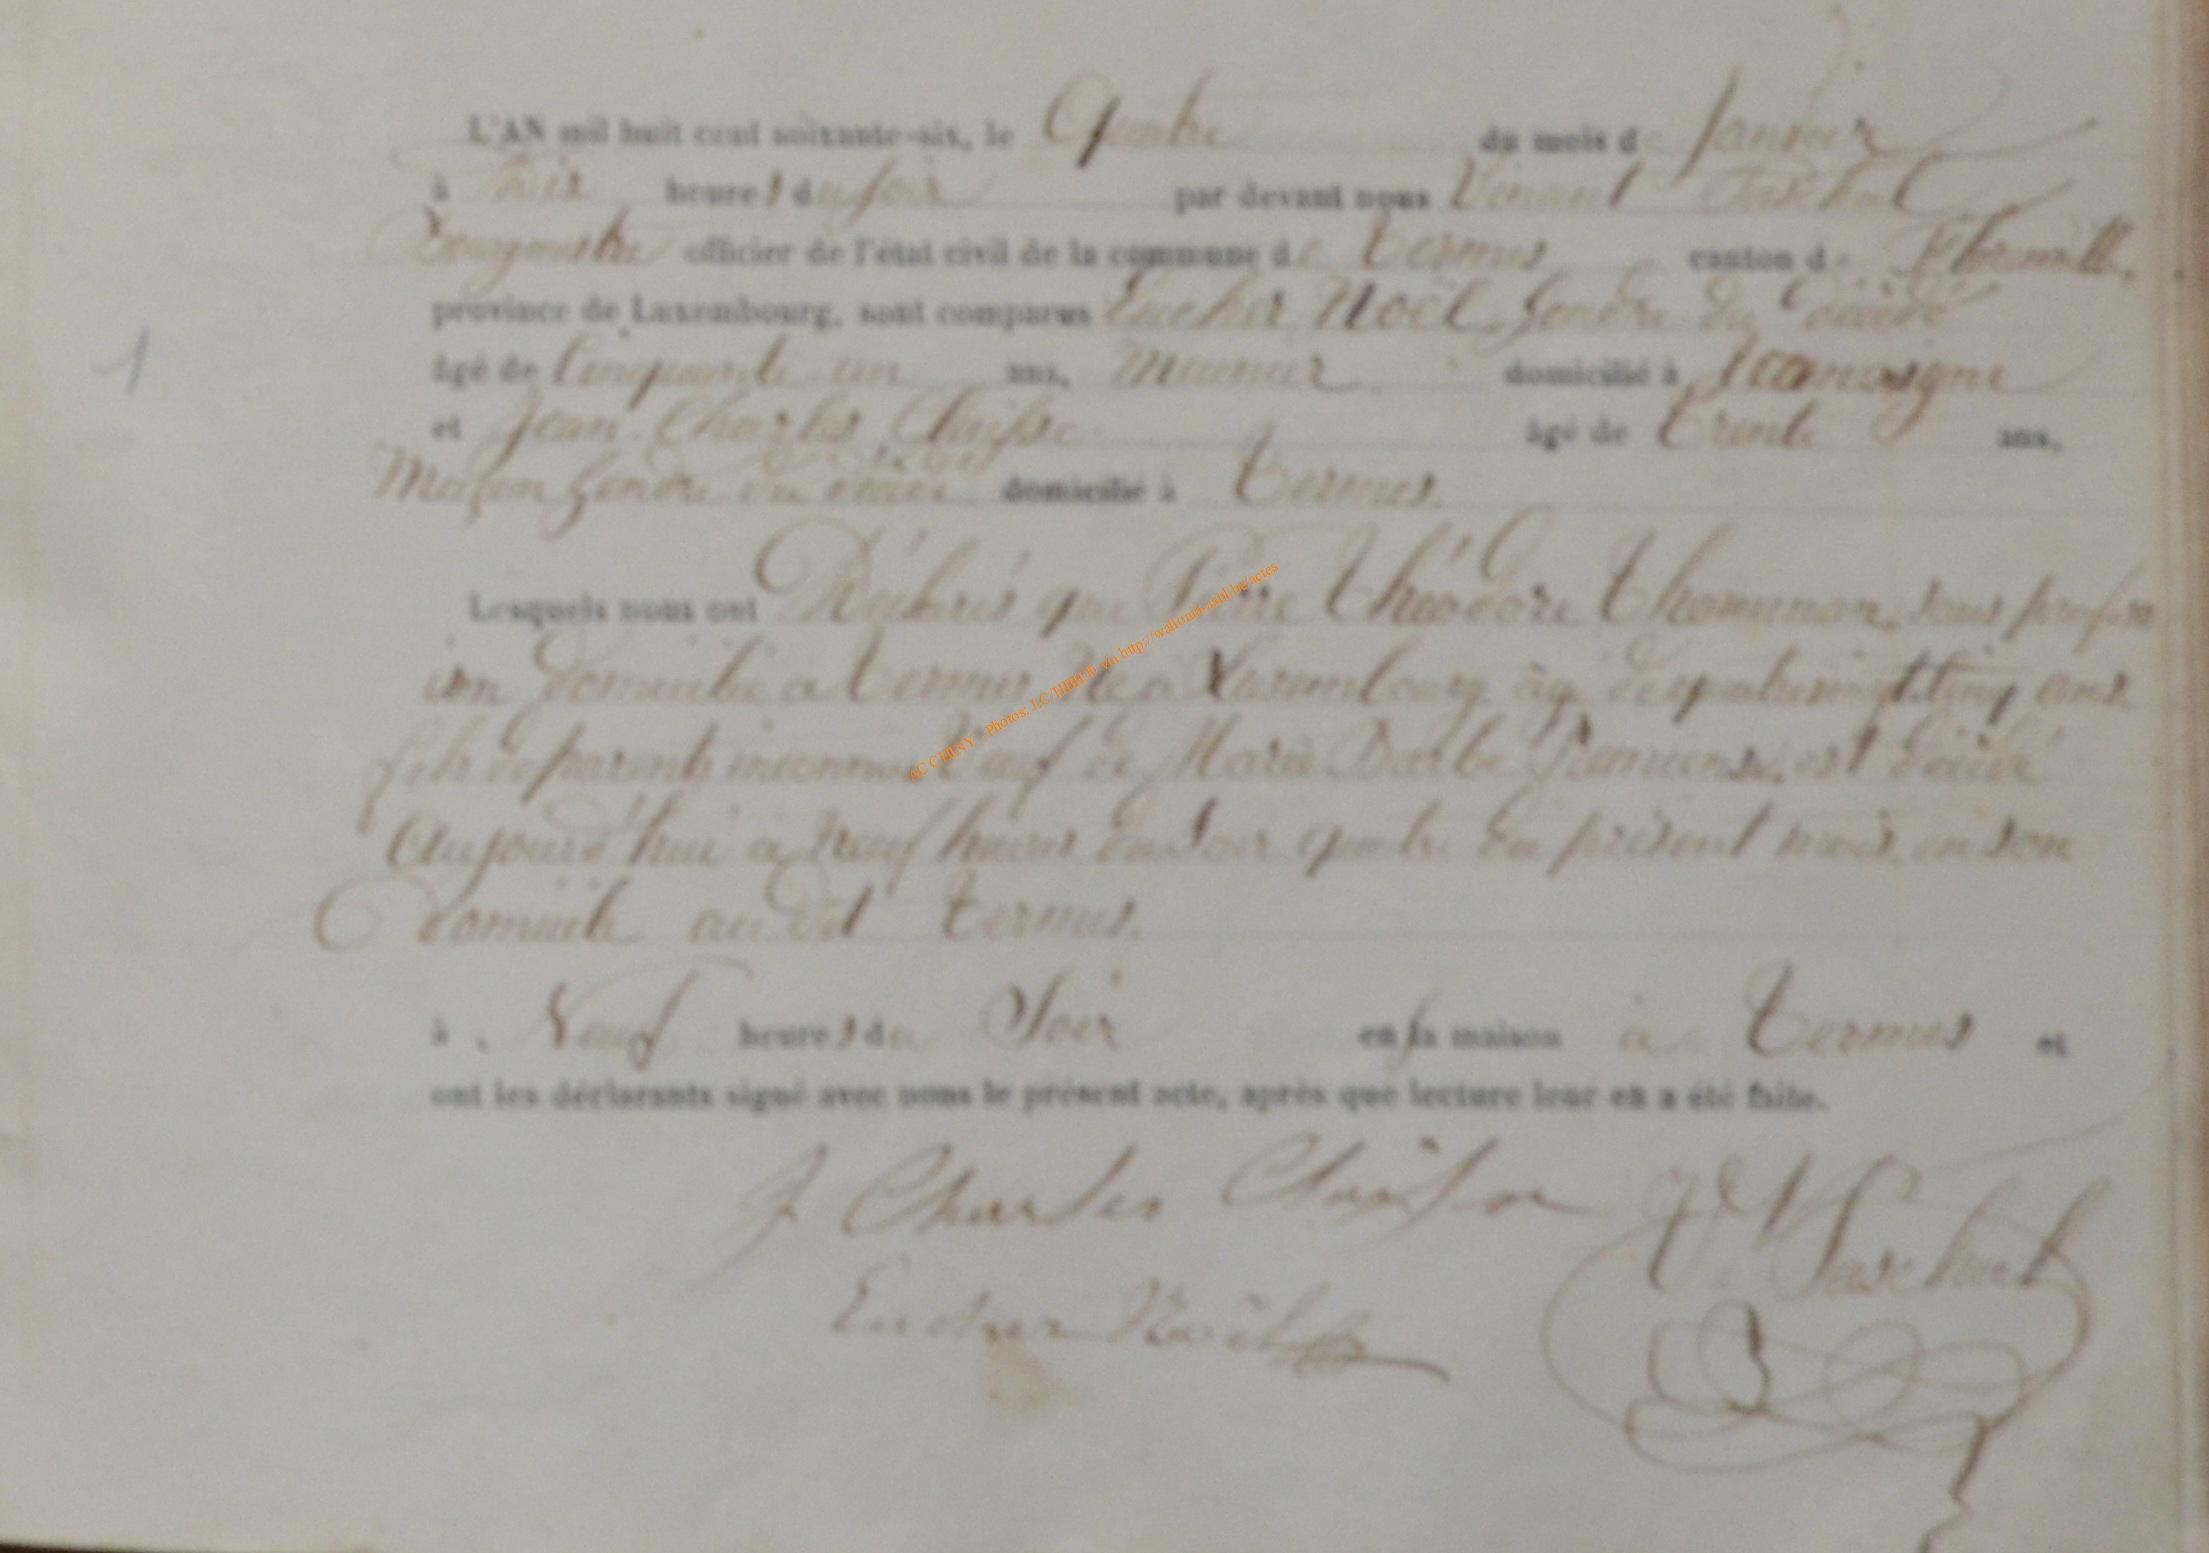 L'AN mil huit cent soixante-six, le Quatre du mois de Janvier
à Dix heures du soir par devant nous Venant Paschal
Bourgmestre officier de l'état civil de la commune de Termes canton de Florenville,
province de Luxembourg, sont comparus Eucher Noël, Gendre du décédé
âgé de Cinquante un ans, Meunier domicilié à Jamoigne
et Jean Charles Claisse âgé de Trente ans,
Maçon Gendre du décédé domicilié à Termes.
1
Lesquels nous ont Déclarés que Pierre Théodore sans profess
ion domicilié à Termes Né à Luxembourg âgé de quatrevingt cinq ans
fils de parents inconnus Veuf de Marie Barbe est décédé
Aujourd'hui à Neuf heures du Soir quatre du présent mois, en son
domicile au dit Termes.
à Neuf heures du Soir en sa maison à Termes et
ont les déclarants signé avec nous le présent acte, après que lecture leur en a été faite.
J Charles Claisse
Paschal
Eucher Noël
AC CHINY - Photos: J.C/HBH.fr via http://wallonia-asbl.be/actes